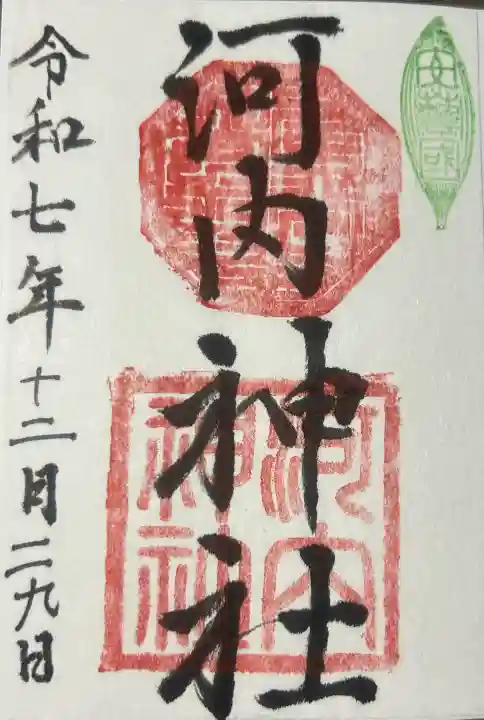 安藝国
河内神社
河内
神社
令和七年十二月二九日